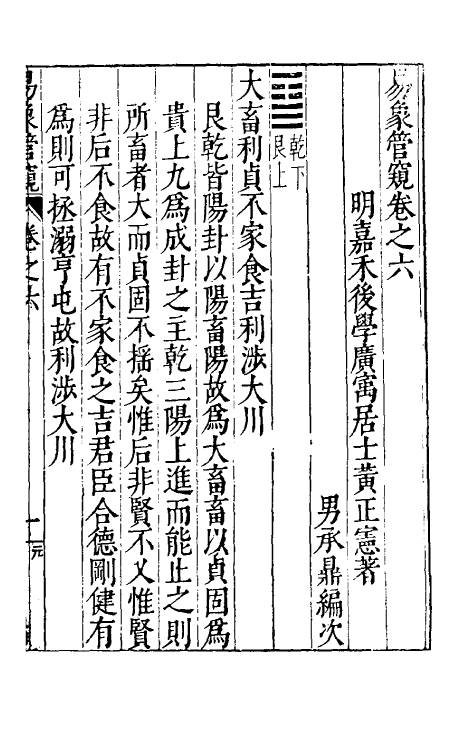 易象管窺卷之六
明嘉禾後學廣寓居士黃正憲著
男承鼎編次
乾下
艮上
大畜利貞不家食吉利涉大川
艮乾皆陽卦以陽畜陽故爲大畜畜以貞固爲
貴上九爲成卦之主乾三陽上進而能止之則
所畜者大而貞固不揺矣惟后非賢不乂惟賢
非后不食故有不家食之吉君臣合德剛健有
爲則可拯溺亨屯故利涉大川
易象管窺
卷之六
一
元